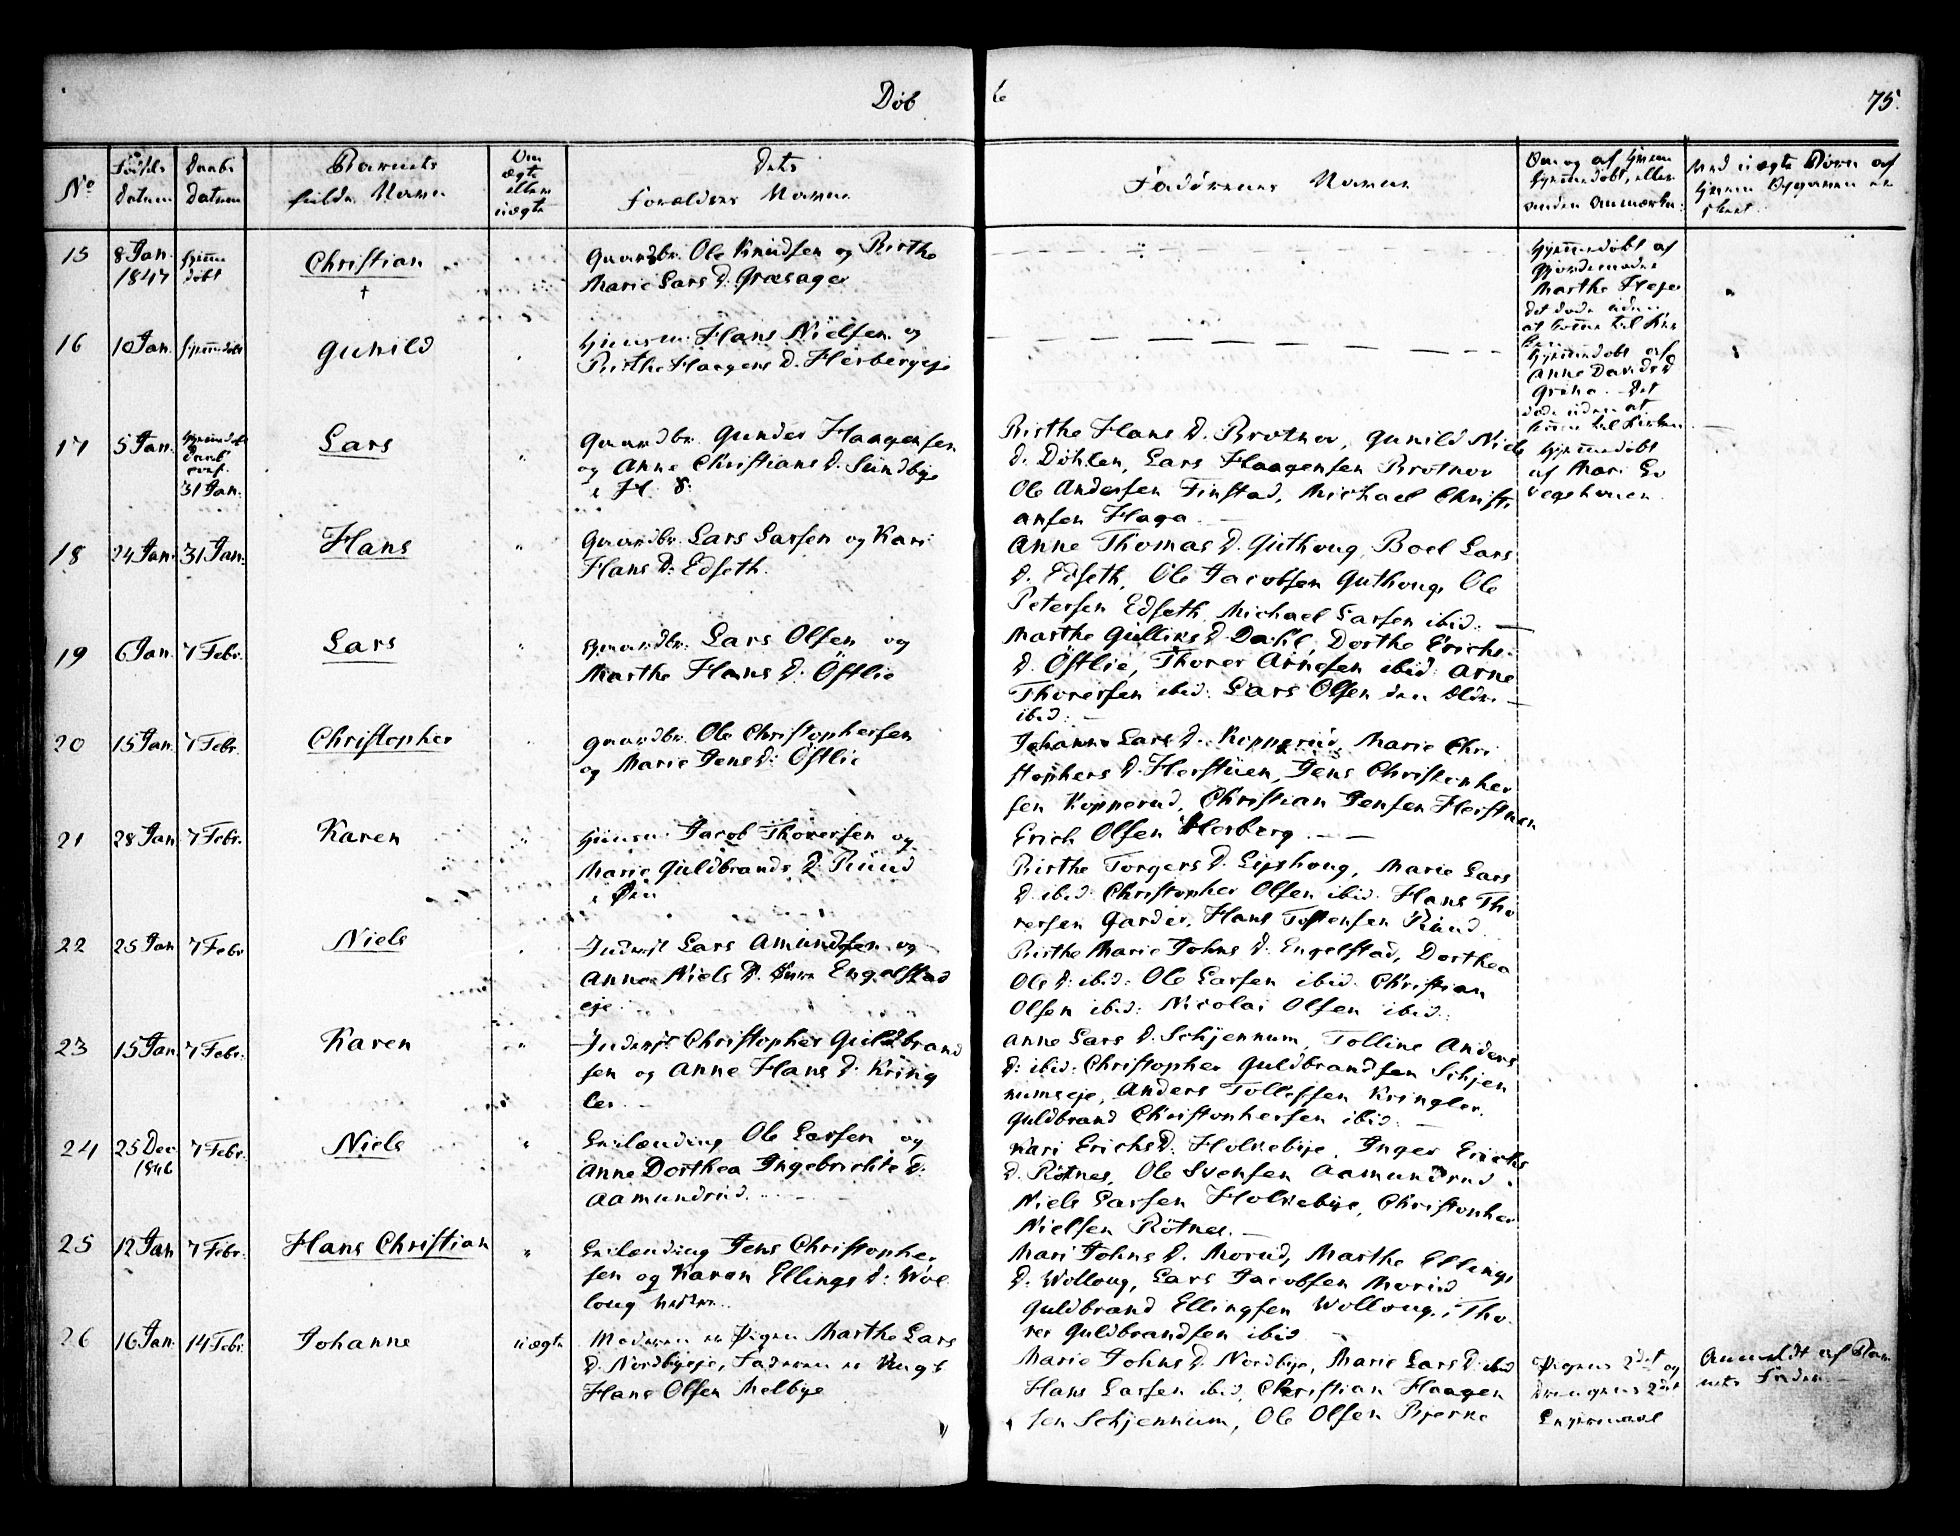 Døb
75.
No
Fødsels
datum
Daabs
datum
Barnets
fulde Navn
Om
ægte
eller
uægte
Dets
Forældres Navne
Faddernes Navne
Om og af hvem
hjemmedøbt, eller
anden Anmærkn:
Ved uægte Børn af
hvem Opgaven er
skeet
15
8 Jan.
1847
hjemme
døbt
Christian
†
"
Gaardbr. Ole Knudsen og Birthe
Marie Lars D: Græsager
Hjemmedøbt af
Gjordemoder
Marthe
det døde uden
at komme til Kir
ken
16
10 Jan.
hjemmedøbt
Gunild
"
Huusm. Hans Nielsen og
Birthe Haagens D. Herbergeje
Hjemmedøbt af
Anne Davids D
døde uden at
komme til Kirken
17
5 Jan.
hjemmedøbt
Daab
31 Jan.
Lars
"
Gaardbr. Gunder Haagensen
og Anne Christians D. Sundbye
i H. S.
Birthe Hans D. Brotnov, Gunild Niels
D. Døhlen, Lars Haagensen Brotnov
Ole Andersen Finstad, Michael Christi
ansen Haga. —
Hjemmedøbt
af Mari
18
24 Jan.
31 Jan.
Hans
"
Gaardbr. Lars Larsen og Kari
Hans D: Edseth.
Anne Thomas D. Guthoug, Boel Lars
D. Edseth, Ole Jacobsen Guthoug, Ole
Petersen Edseth, Michael Larsen ibid: —
19
6 Jan.
7 Febr.
Lars
"
Gaardbr. Lars Olsen og
Marthe Hans D: Østlie
Marthe Gulliks D Dahl, Dorthe Erichs
D. Østlie, Thorer Arnesen ibid: Arne
Thorersen ibid: Lars Olsen den Ældre
ibid: —
20
15 Jan.
7 Febr.
Christopher
"
Gaardbr. Ole Christophersen
og Marie Jens D: Østlie
Johanne Lars D. Kopperud, Marie Chri
stophers D. Herstuen, Jens Christopher
sen Kopperud, Christian Jensen Herstuen
Erich Olsen Herberg. —
21
28 Jan
7 Febr.
Karen
"
Huusm. Jacob Thorersen og
Marie Guldbrands D: Ruud
i Øier
Birthe Torgers D. Lipshoug, Marie Lars
D. ibid: Christopher Olsen ibid. Hans Tho
rersen Garder, Hans Tostensen Ruud.
22
25 Jan
7 Febr
Niels
"
Inderst Lars Amundsen og
Anne Niels D. Engelstad
eje.
Birthe Marie Johns D. Engelstad, Dorthea
Ole D: ibid: Ole Larsen ibid. Christian
Olsen ibid: Nicolai Olsen ibid:
23
15 Jan.
7 Febr.
Karen
"
Inderst Christopher Guldbrand
sen og Anne Hans D. Kring
ler. —
Anne Lars D. Schjennum, Tolline Anders
D: ibid: Christopher Guldbrandsen Schjen
numseje, Anders Tollefsen Kringler.
Guldbrand Christophersen ibid: —
24
25 Dec
1846
7 Febr.
Niels
"
Ole Larsen og
Anne Dorthea Ingebrichts D:
Aamundrud.
Kari Erichs D. Holkebye, Inger Erichs
D. Røtnes, Ole Svensen Aamundrud
Niels Larsen Holkebye, Christopher
Nielsen Røtnes. —
25
12 Jan
7 Febr.
Hans Christian
"
Jens Christopher
sen og Karen Ellings D: Wol
loug nedre.
Mari Johns D. Morud, Marthe Ellings
D. Wolloug, Lars Jacobsen Morud
Guldbrand Ellingsen Wolloug, Tho
rer Guldbrandsen ibid —
26
16 Jan.
14 Febr.
Johanne
uægte
Moderen er Pigen Marthe Lars
D. Nordbyeje, Faderen er Ungk
Hans Olsen Melbye
Marie Johns D. Nordbye, Marie Lars D: ibid
Hans Larsen ibid, Christian Haagen
sen Schjennum, Ole Olsen Bjerke
Pigens 2det og
Drengens 2det
Lejermaal
Anmeldt af Bar
nets Fader —